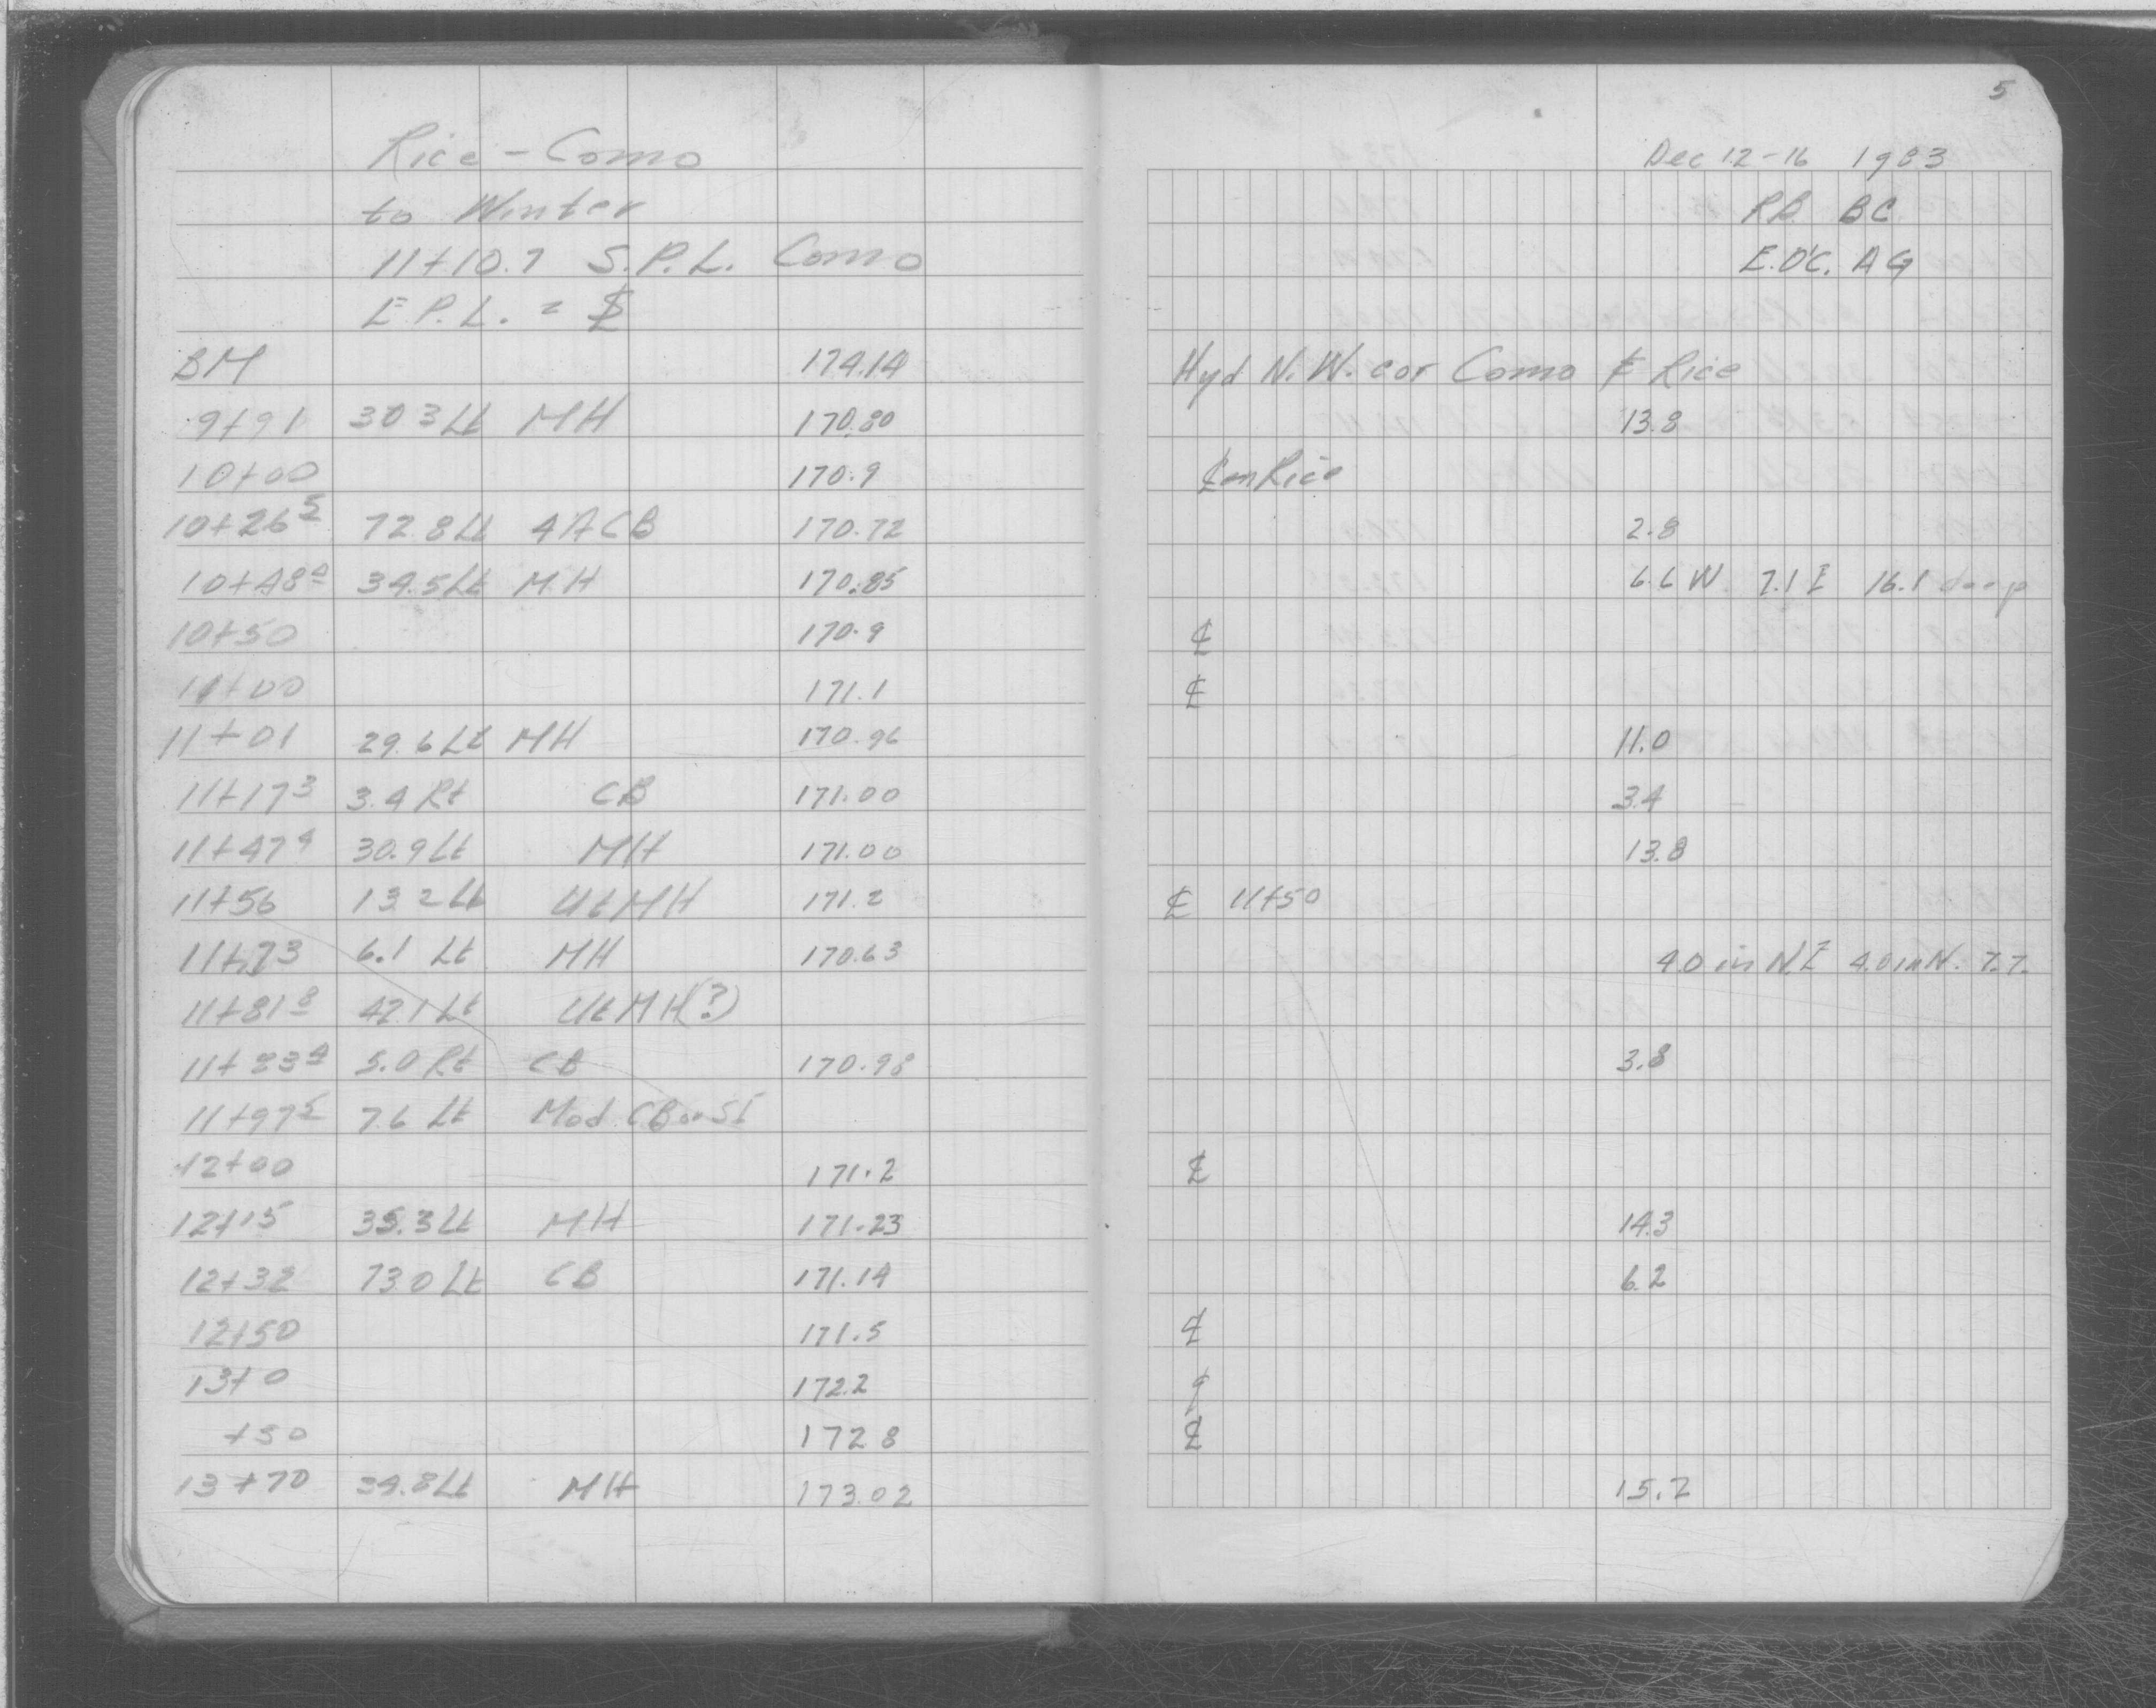 5
Rice - Como Dec 12-16 1983
to Winter R.B. BC
11+10.7 S.P.L. Como E.O'C. AG
E.P.L. = ℄
BM 174.14 Hyd N.W. cor Como & Rice
9+91 30.3 Lt MH 170.80 13.8
10+00 170.9 ℄ on Rice
10+26⁵ 72.8 Lt 4A CB 170.72 2.8
10+48⁴ 34.5 Lt MH 170.85 6.6 W 7.1 E 16.1 deep
10+50 170.9 ℄
11+00 171.1 ℄
11+01 29.6 Lt MH 170.96 11.0
11+17³ 3.4 Rt CB 171.00 3.4
11+47⁴ 30.9 Lt MH 171.00 13.8
11+56 13.2 Lt Ut MH 171.2 ℄ 11+50
11+73 6.1 Lt MH 170.63 4.0 in N.E 4.0 in N. 7.7.
11+81⁸ 42.1 Lt Ut MH(?)
11+83⁴ 5.0 Rt CB 170.98 3.8
11+97⁵ 7.6 Lt Mod CB on SE
12+00 171.2 ℄
12+15 35.3 Lt MH 171.23 14.3
12+32 73.0 Lt CB 171.14 6.2
12+50 171.5 ℄
13+0 172.2
+50 172 8 ℄
13+70 34.8 Lt MH 173.02 15.2